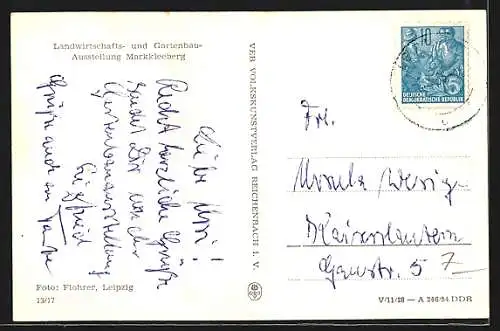 Landwirtschafts- und Gartenbau-
Ausstellung Markkleeberg
Liebe Ursi!
Recht herzliche Grüße
sendet Dir von der
Gartenbauausstellung
Siegfried
Grüße auch an Tante
Foto: Flohrer, Leipzig
13/17
VEB VOLKSKUNSTVERLAG REICHENBACH I. V.
10
DEUTSCHE
DEMOKRATISCHE REPUBLIK
5
Frl.
Ursula
Kaiserslautern
57
V/11/28 — A 266/54 DDR